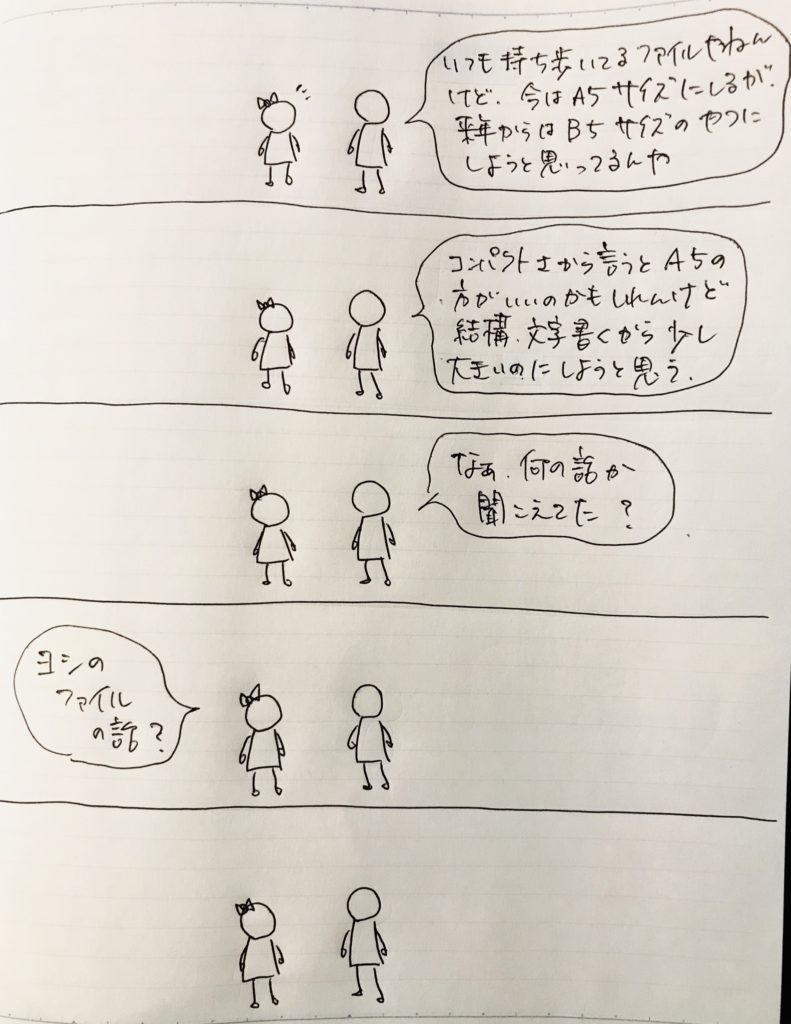 いつも持ち歩いてるファイルやねん
けど、今はA5サイズにしるが、
来年からはB5サイズのやつに
しようと思ってるんや
コンパクトさから言うとA5の
方がいいのかもしれんけど
結構、文字書くから少し
大きいのにしようと思う、
なぁ、何の話か
聞こえてた？
ヨシの
ファイル
の話？